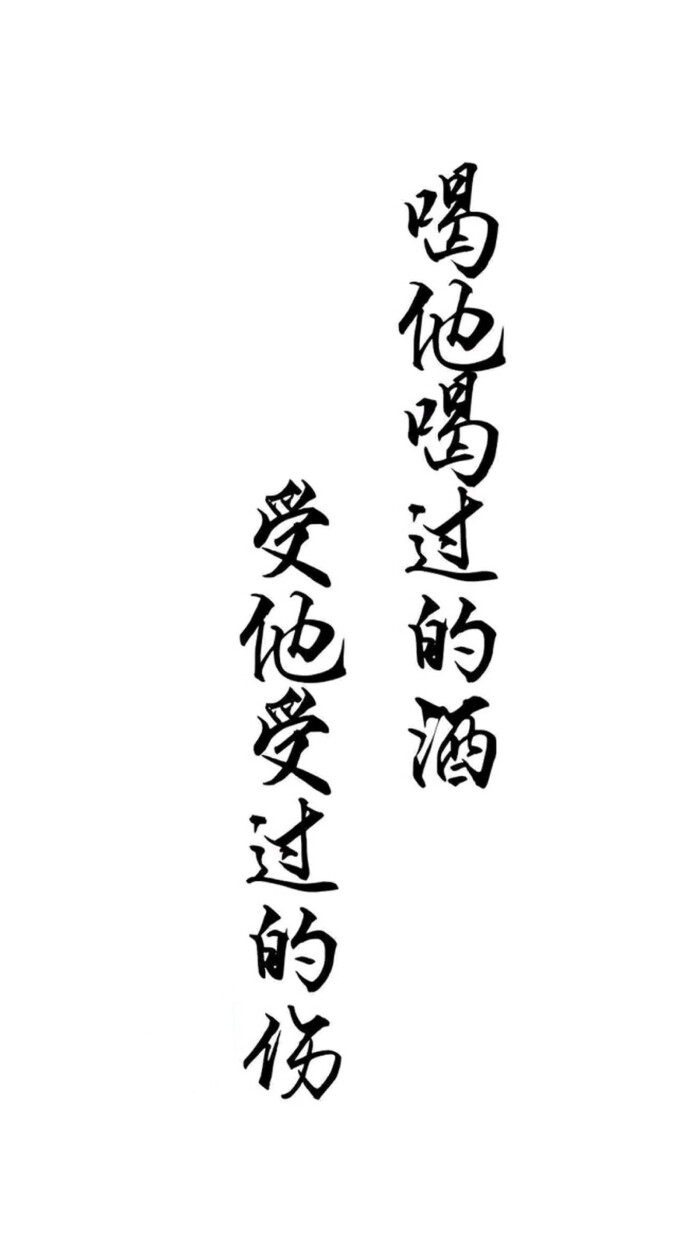 喝他喝过的酒
受他受过的伤